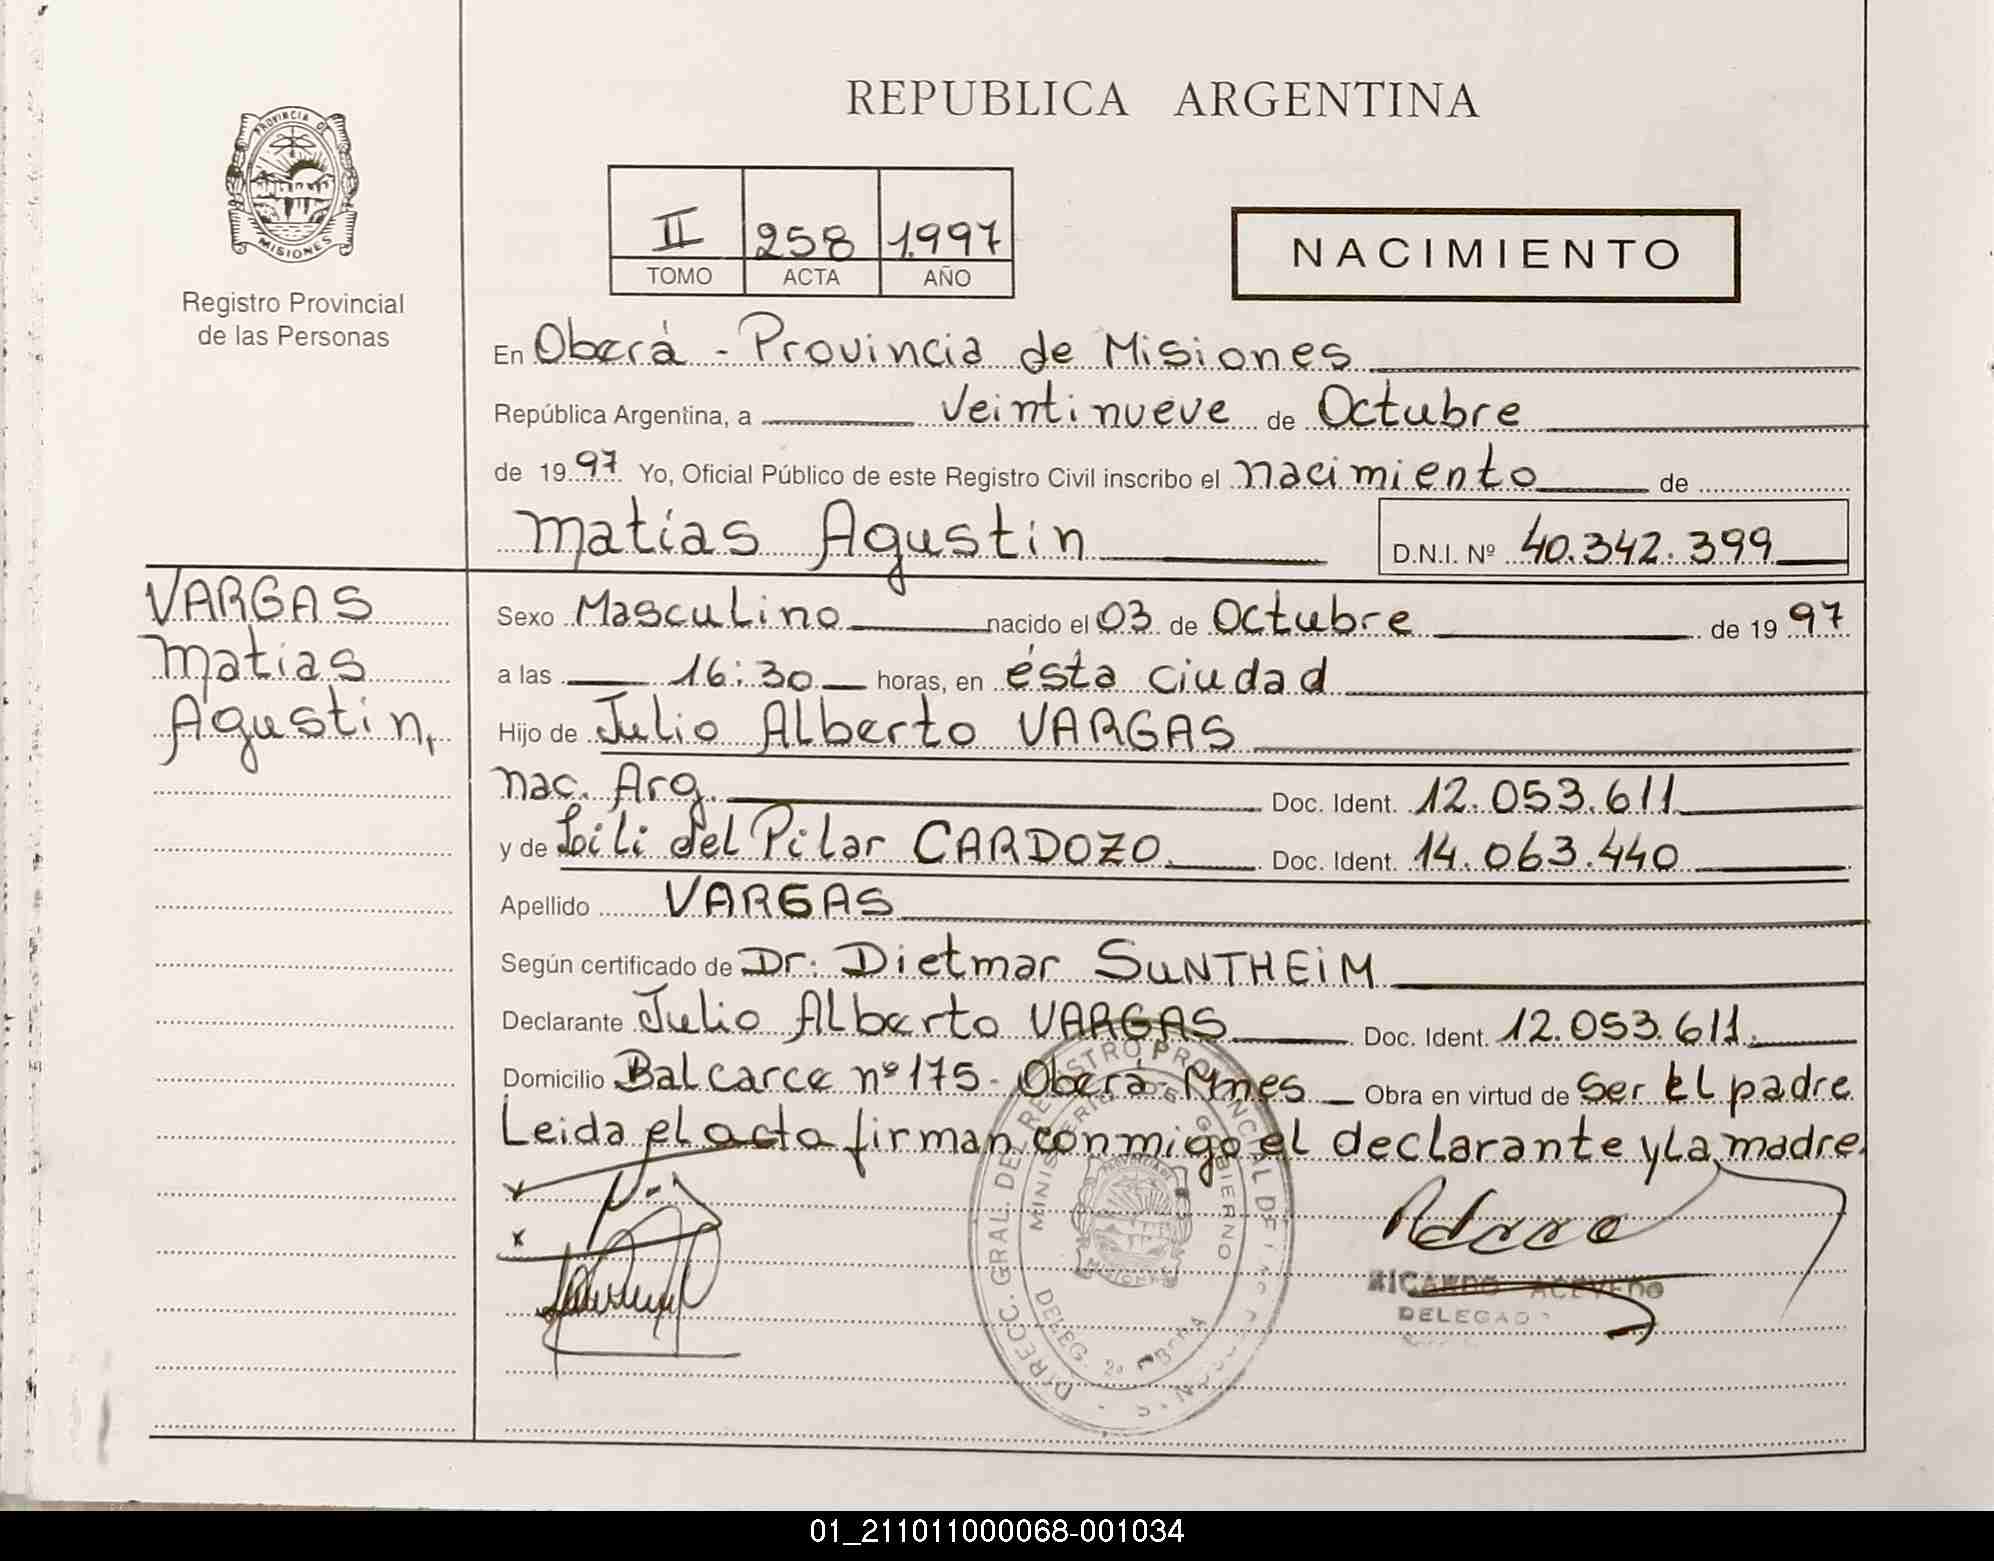 REPUBLICA ARGENTINA
PROVINCIA DE
MISIONES
Registro Provincial
de las Personas
II 258 1.997
TOMO ACTA AÑO
NACIMIENTO
En Oberá - Provincia de Misiones
República Argentina, a veintinueve de Octubre
de 1997 Yo, Oficial Público de este Registro Civil inscribo el nacimiento de
Matías Agustin D.N.I. Nº 40.342.399
VARGAS
Matias
Agustin,
Sexo Masculino nacido el 03 de Octubre de 1997
a las 16:30 horas, en ésta ciudad
Hijo de Julio Alberto VARGAS
nac. Arg. Doc. Ident. 12.053.611
y de Lili del Pilar CARDOZO. Doc. Ident. 14.063.440
Apellido VARGAS
Según certificado de Dr. Dietmar SUNTHEiM
Declarante Julio Alberto VARGAS Doc. Ident. 12.053.611.
Domicilio Balcarce nº 175- Oberá Mnes Obra en virtud de Ser El padre
Leida el acta firman conmigo el declarante y La madre.
DIRECC. GRAL. DEL REGISTRO PROVINCIAL DE
MINISTERIO DE GOBIERNO
PROVINCIA DE
MISIONES
DELEG. 2º
RICARDO ACEVEDO
DELEGADO
01_211011000068-001034